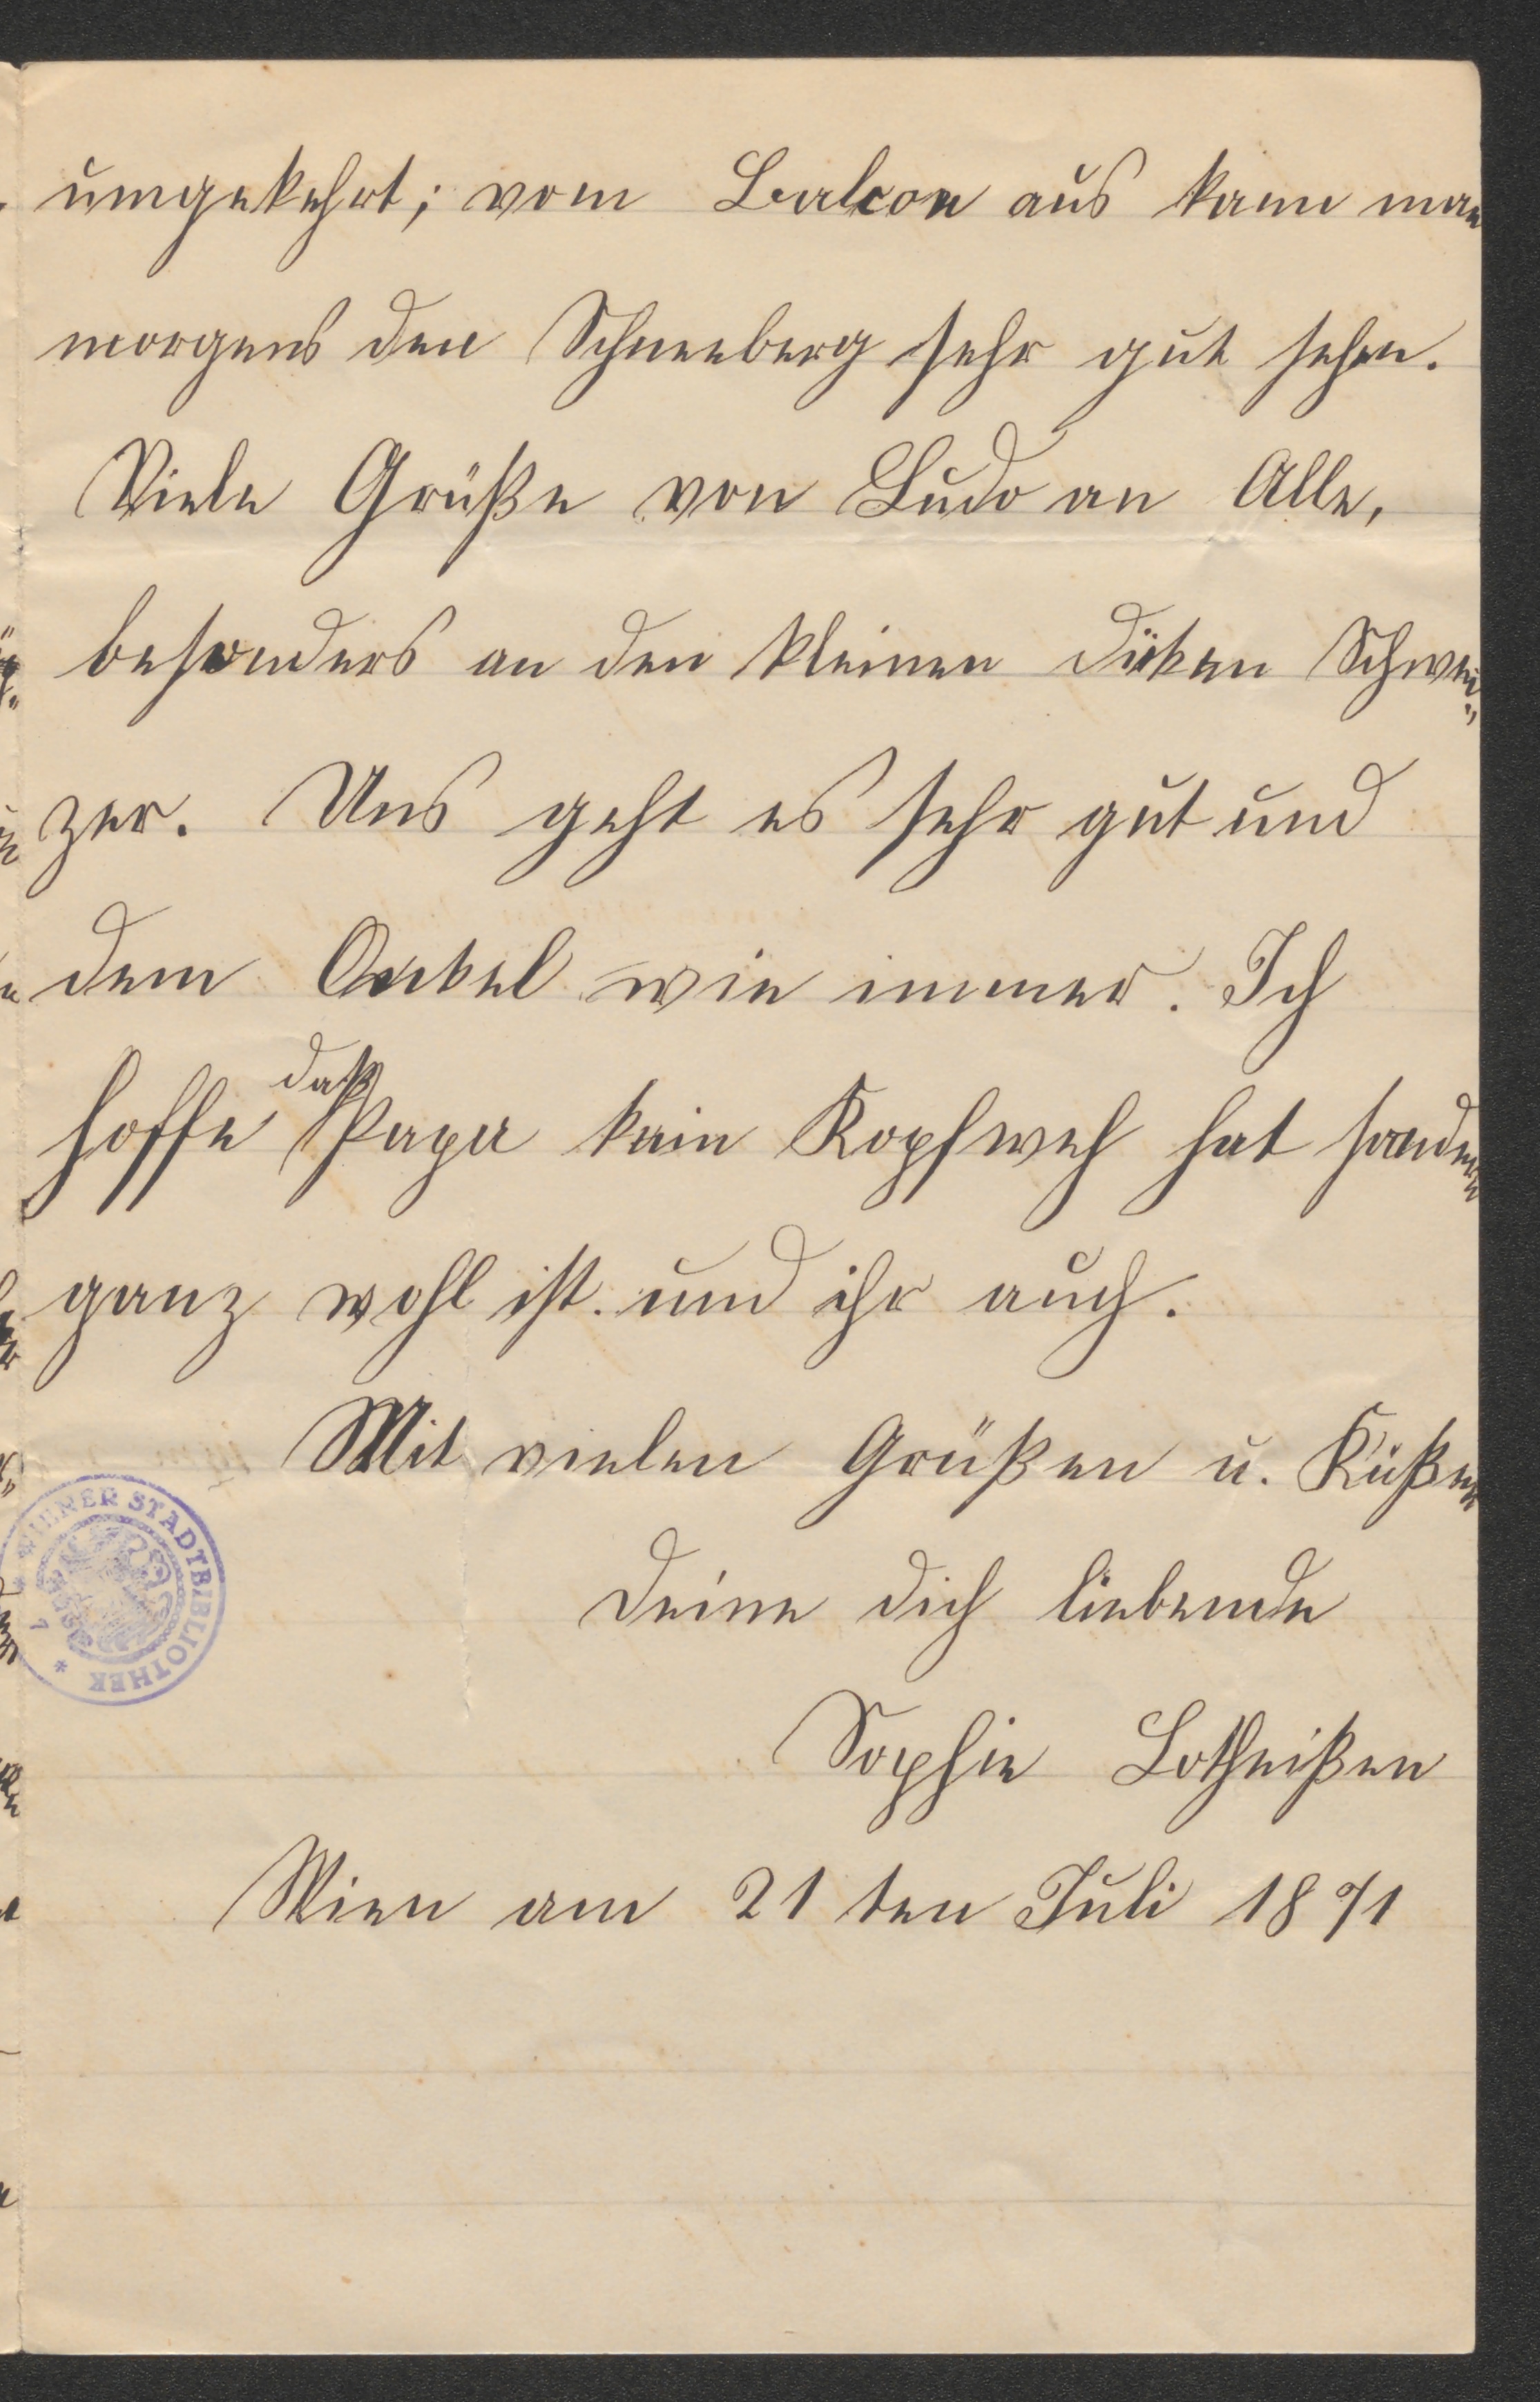 umgekehrt; vom Balcon aus kann man
morgens den Schneeberg sehr gut sehen.
Viele Grüße von Ludo an Alle,
besonders an den kleinen diken Schwei„
zer. Uns geht es sehr gut und
dem Onkel wie immer. Ich
daß
hoffe Papa kein Kopfweh hat sondern
ganz wohl ist. und ihr auch.
Mit vielen Grüßen u. Küßen
deine dich liebende
WIENER STADTBIBLIOTHEK
Sophie Lotheißen
Wien am 21ten Juli 1871